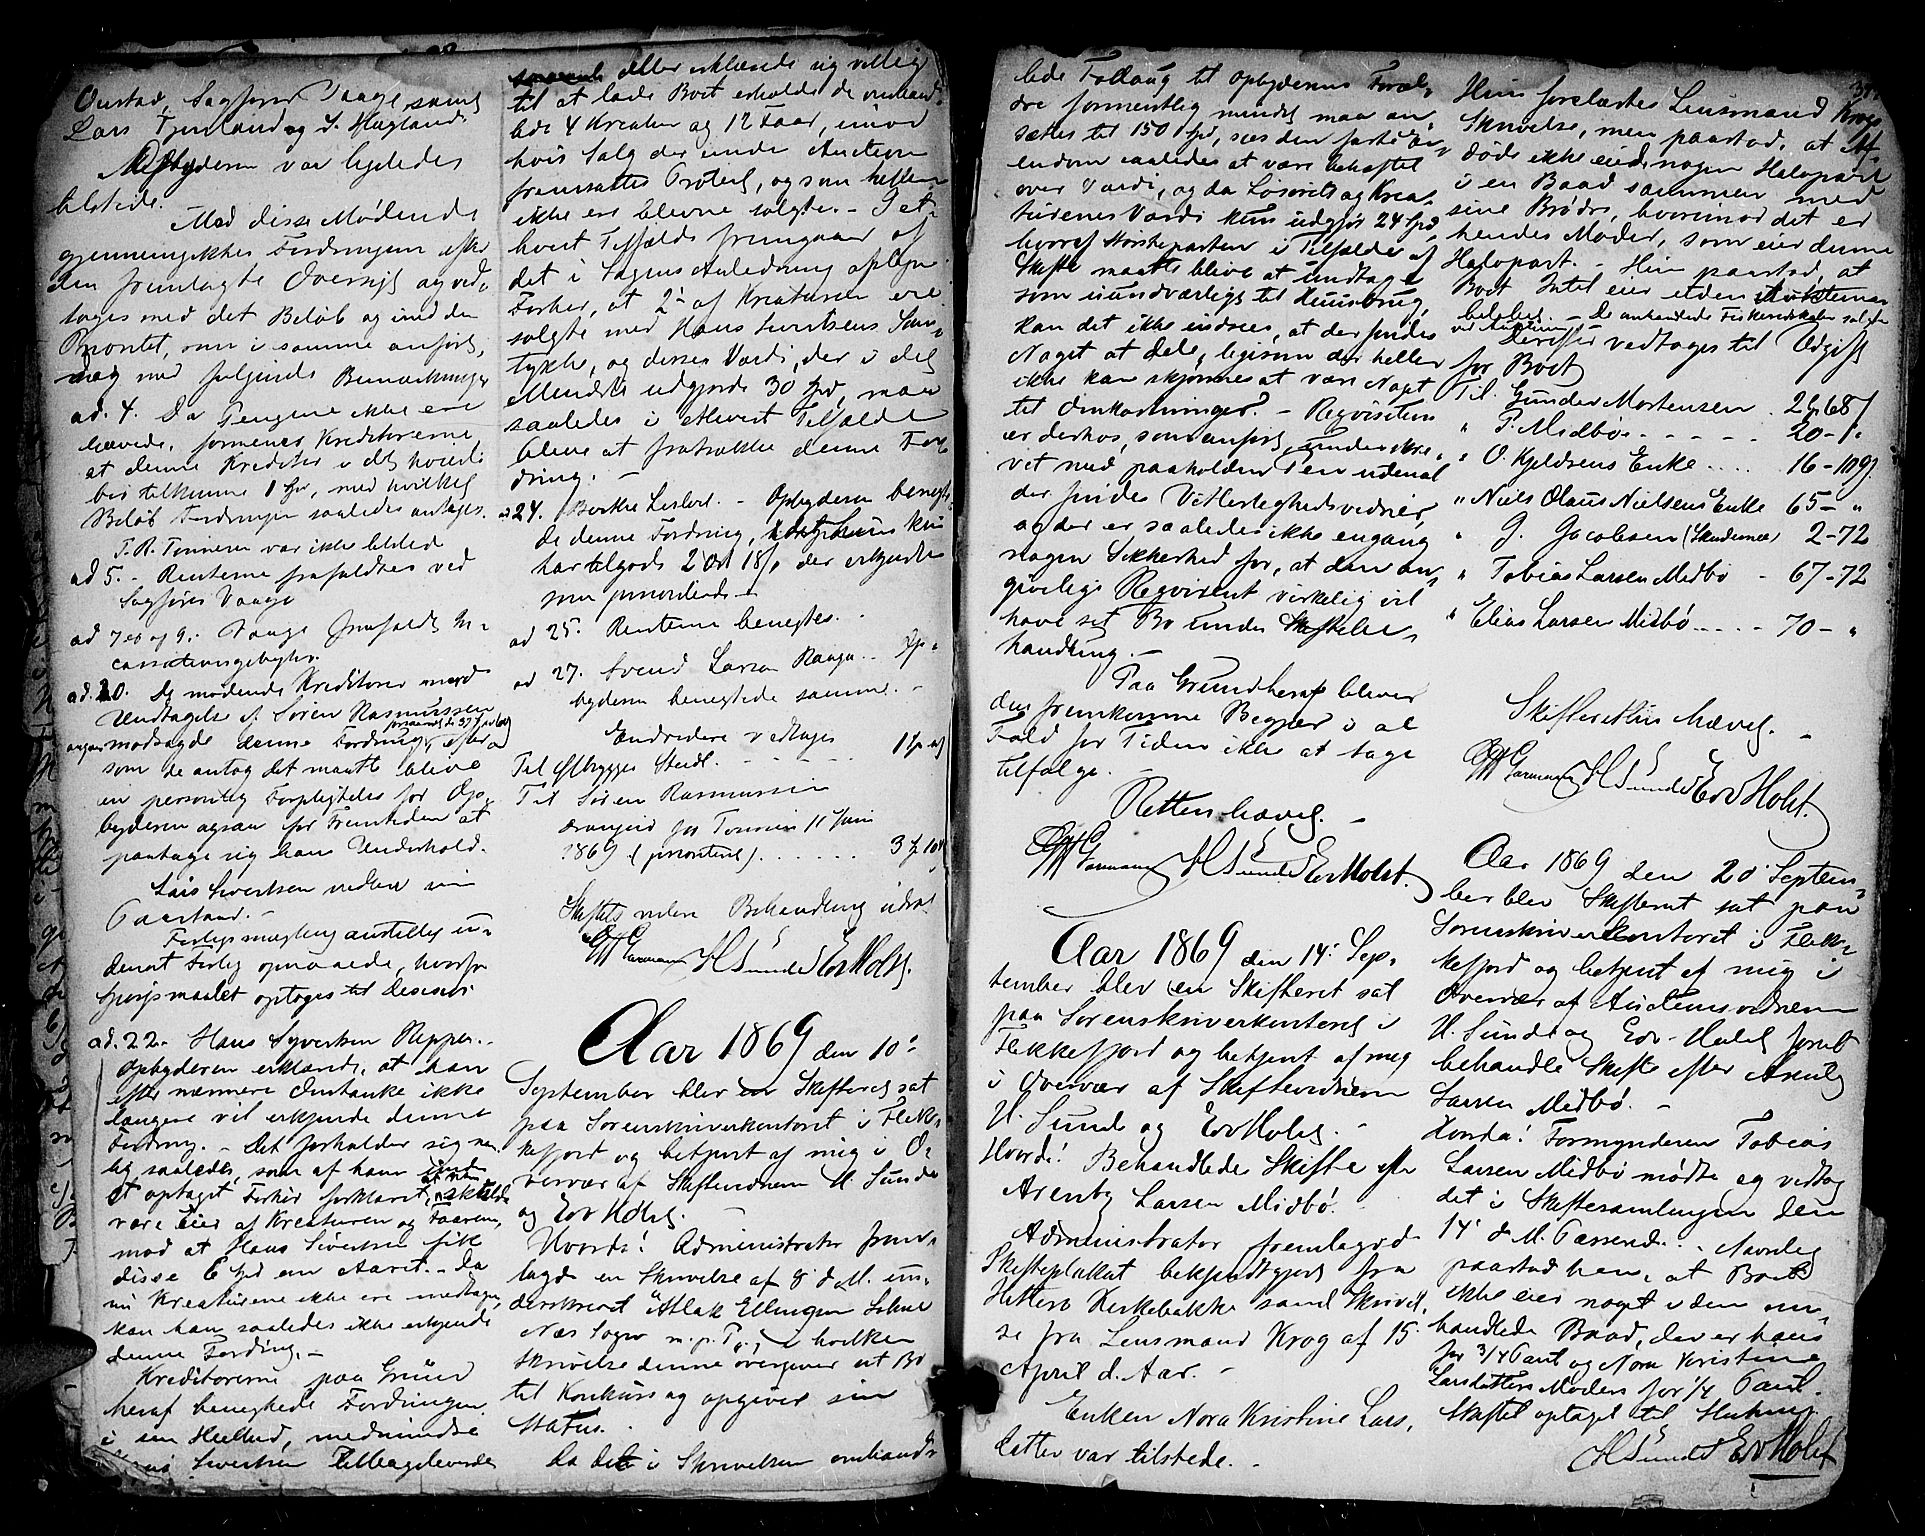 Onstad, Sagfører Vaage, samt
Lars Fjenland og S. Høgland.
Opbyderen var ligeledes
tilstede.
Med disse Mødende
gjennemgikkes Fordringerne efter
den fremlagte Oversigt og ved-
toges med det Beløb og med den
Prioritet, som i samme anført,
dog med følgende Bemærkninger
ad. 4. Da Pengene ikke ere
lævede, formener Kreditorerne
at denne Kreditor i det høieste
bør tilkomme 1 Spd, med hvilket
Beløb Fordringen saaledes antages.
T. R. Tønnesen var ikke tilsted
ad 5. - Renterne frafaldtes ved
Sagfører Vaage
ad 7 og 9. Vaage frafaldt In-
cassationsgebyhr.
ad. 20. De mødende Kreditorer med
Undtagelse af Søren Rasmussen
modsagde denne Fordring, efter-
som de antog det maatte blive
en personlig Forpligtelse for Op-
byderen ogsaa for Fremtiden at
paatage sig hans Underhold.
Lars Sivertsen nedlæ sin
Paastand. -
Forligsmægling anstilles u-
dent Forlig opnaaede, hvorfor
Spørgsmaalet optoges til Decision
ad. 22. Hans Syvertsen Repper. -
Opbyderen erklærede, at han
efter nærmere Omtanke ikke
længere vil erkjende denne
Fordring. - Det forholder sig nem-
lig saaledes, som af ham i det
optaget Forhør forklaret, at han skulde
være Eier af Kreaturene og Faarene,
mod at Hans Sivertsen fik
disse 6 Spd om Aaret. - Da
nu Kreaturene ikke ere medtagne,
kan han saaledes ikke erkjende
denne Fordring. -
Kreditorerne paa Grund
heraf benegtede Fordringen
i sin Heelhed, medmindre
Hans Sivertsen tilbageleverede
eller erklærede sig villig
til at lade Boet erholde de omhand-
lede 4 Kreature og 12 Faar, imod
hvis Salg der under Auctionen
fremsattes Protest, og som heller
ikke ere blevne solgte. - I et-
hvert Tilfælde fremgaaer af
det i Sagens Anledning optagne
Forhør, at 2de af Kreaturene ere
solgte med Hans Sivertsens Sam-
tykke, og deres Værdi, der i det
Mindste udgjorde 30 Spd, maa
saaledes i ethvert Tilfælde
blive at fratrække denne For-
dring. -
ad 24. Børkke Lesland. - Opbyderen benegte-
de denne Fordring,
har tilgode 2 Ort 18 s, der erkjendtes
som prioriteret. -
ad 25. Renterne benegtes. -
ad 27. Svend Larsen Raage. - Op-
byderen benegtede samme. -
Endvidere vedtages
Til Ølbrygger Steidl. - - - - - 1 Sp
Til Søren Rasmussen
for Tønnesen 11 Juni
1869 (prioriteret) . . . . . . 3 Sp. 10 s
Skiftets videre Behandling udsat
OWGarmann HSunde EdvHolst.
Aar 1869 den 10de
September blev en Skifteret sat
paa Sorenskriverkontoret i Flek-
kefjord og betjent af mig i O-
vervær af Skiftevidnerne H. Sunde
og Edv Holst. -
Hvorda! Administrator frem-
lagde en Skrivelse af 8 d. M. un-
derskrevet Atlak Ellingsen Lohne
Næs Sogn m. p. P., i hvilken
Skrivelse denne overgiver sit Bo
til Konkurs og opgiver sin
Status.
Da det i Skrivelsen omhand-
lede Follaug til Opbyderens Foræl-
dre formentlig mindst maa an-
sættes til 150 Spd, sees den faste Ei-
endom saaledes at være behæftet
over Værdi, og da Løsørets og Krea-
turenes Værdi kun udgjør 24 Spd,
hvoraf Størsteparten i Tilfælde af
Skifte maatte blive at undtage
som uundværlige til Huusbrug,
kan det ikke indsees, at der findes
Noget at dele, ligesom der heller
ikke kan skjønnes at være Noget
til Omkostninger. - Reqvisitionen
er derhos, som anført, underskre-
vet med paaholden Pen udenat
der findes Vitterlighedsvidner,
og der er saaledes ikke engang
nogen Sikkerhed for, at den an-
givelige Reqvirent virkelig vil
have sit Bo under Skiftebe-
handling. -
Paa Grund heraf bliver
den fremkomne Begjæring i al
Fald for Tiden ikke at tage
tilfølge. -
Retten hævet. -
OWGarmann HSunde EdvHolst.
Aar 1869 den 14de Sep-
tember blev en Skifteret sat
paa Sorenskriverkontoret i
Flekkefjord og betjent af mig
i Overvær af Skiftevidnerne
H. Sunde og EdvHolst. -
Hvorda! Behandlede Skifte efter
Arentz Larsen Midbø.
Administrator fremlagde
Skifteplakat bekjendtgjort fra
Hitterø Kirkebakke samt Skrivel-
se fra Lensmand Krog af 15
April d. Aar. -
Enken Nora Kristine Lars-
datter var tilstede. -
Hun forelæstes Lensmand Krogs
Skrivelse, men paastod, at Af-
døde ikke eiede nogen Halvpart
i en Baad sammen med
sine Brødre, hvorimod det er
hendes Moder, som eier denne
Halvpart. - Hun paastod, at
Boet Intet eier uden Auktions-
beløbet. - De omhandlede Fiskeredskaber solgtes
ved Auctionen. - Derefter vedtages til Udgift
for Boet
Til Gunder Mortensen . 26-68 s
" P. Midbø - - - - - 20 - "
" O. Kjeldsens Enke . . . . 16 - 109.
" Niels Olaus Nielsens Enke 65 - "
" G. Jacobsen (Skudenæs) 2-72
" Tobias Larsen Midbø - 67-72
" Elias Larsen Midbø - - - - 70 - "
Skifteretten hævet. -
OWGarmann HSunde EdvHolst.
Aar 1869 den 20 Septem-
ber blev Skifteret sat paa
Sorenskriverkontoret i Flek-
kefjord og betjent af mig i
Overvær af Auctionsvidnerne
H. Sunde og Edv. Holst for at
behandle Skifte efter Arentz
Larsen Midbø. -
Hvorda! Formynderen Tobias
Larsen Midbø mødte og vedtog
det i Skiftesamlingen den
14de d. M. Passerede. - Navnlig
paastod han, at Boet
ikke eier noget i den om-
handlede Baad, der er hans
for 3/4 Part og Nora Kristine
Larsdatters Moders for 1/4 Part.
Skiftet optaget til Slutning
HSunde EdvHolst